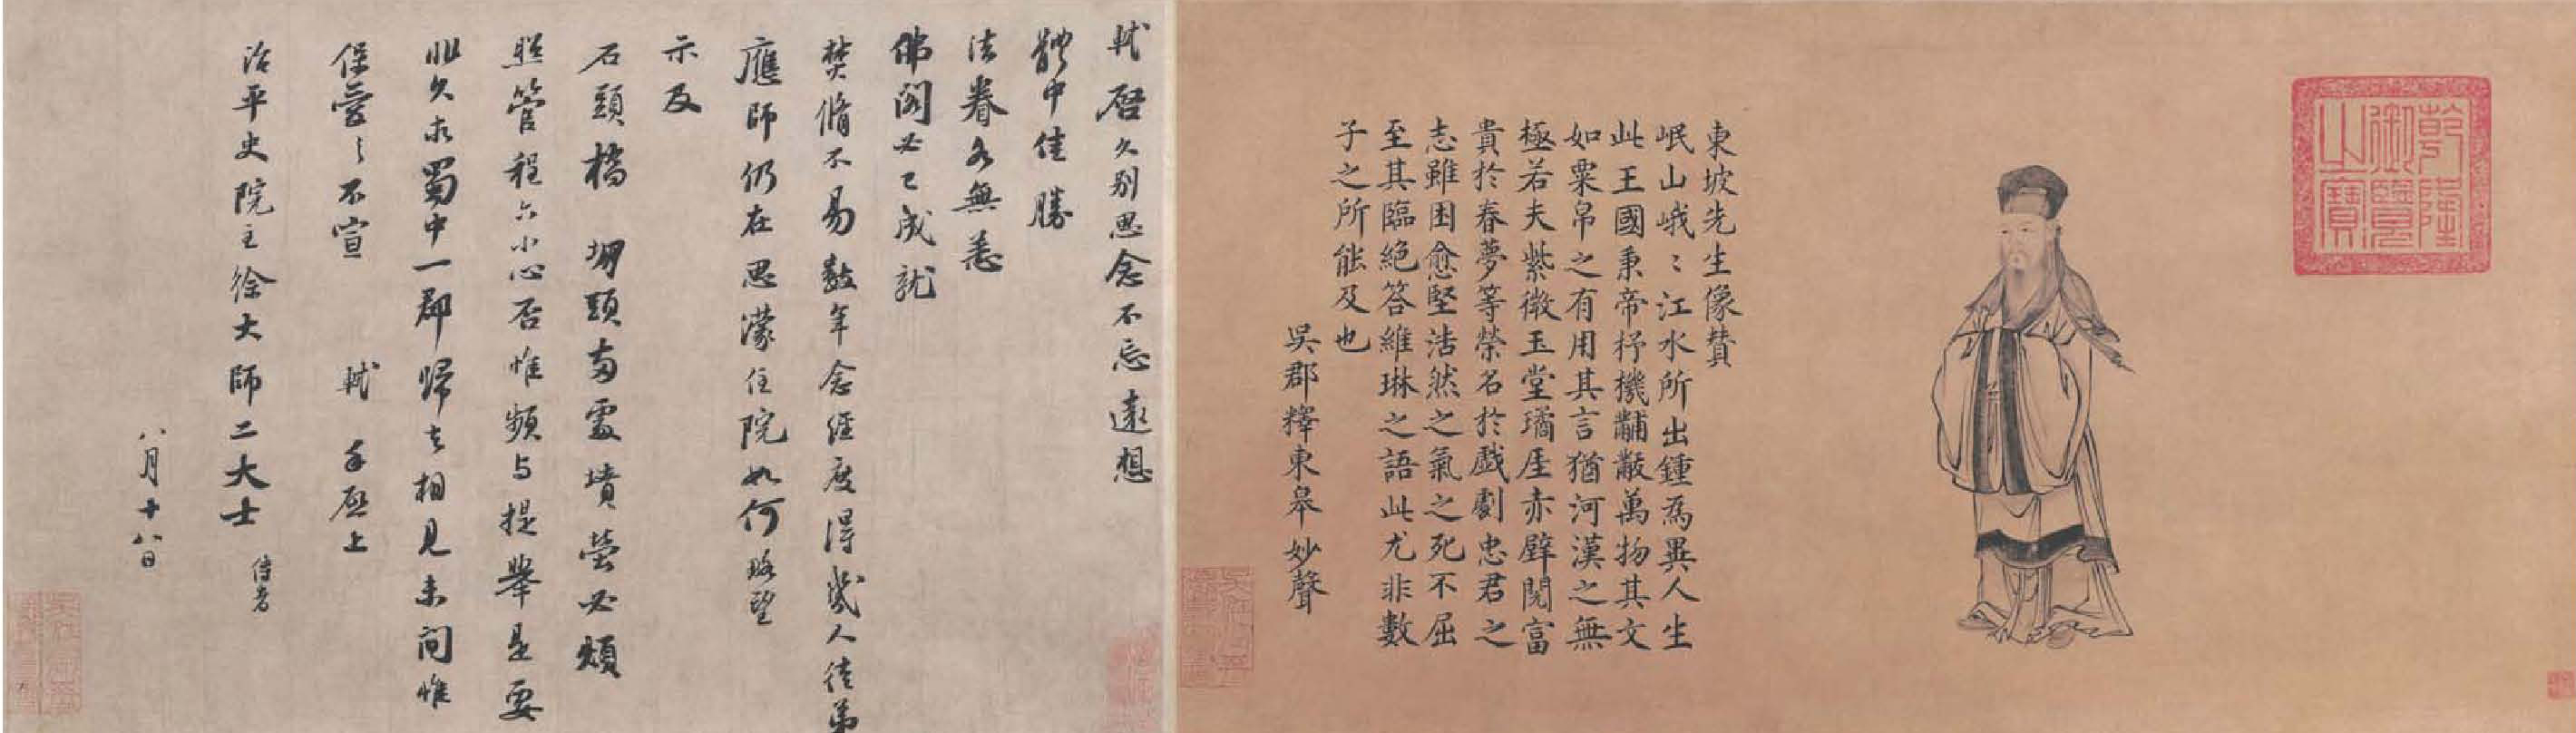 乾隆御覽之寶
東坡先生像贊
岷山峨〻江水所出鍾為異人生
此王國秉帝杼機黼黻萬物其文
如粟帛之有用其言猶河漢之無
極若夫紫微玉堂璚厓赤壁閱富
貴於春夢等榮名於戲劇忠君之
志雖困愈堅浩然之氣之死不屈
至其臨絕答維琳之語此尤非數
子之所能及也
吳郡釋東皋妙聲
軾啓久別思念不忘遠想
體中佳勝
法眷各無恙
佛閣必已成就
焚脩不易數年念經度得幾人徒弟
應師仍在思濛住院如何略望
示及
石頭橋堋頭兩處墳塋必煩
照管程六小心否惟頻与提舉是要
非久求蜀中一郡歸去相見未間惟
保愛〻不宣 軾手啟上
治平史院主徐大師二大士 侍者
八月十八日